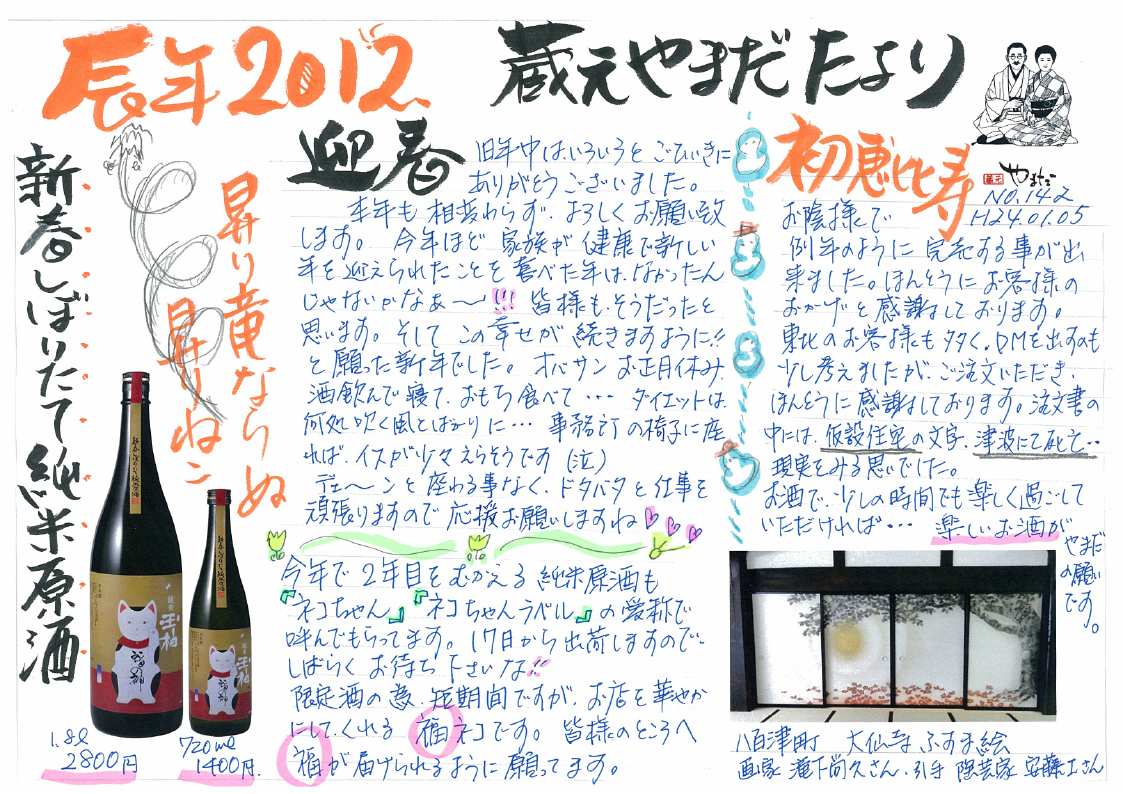 辰年2012.
蔵元やまだたより
新春しぼりたて純米原酒
昇り竜ならぬ
昇りねこ
迎春
旧年中はいろいろとごひいきに
ありがとうございました。
本年も相変わらず、よろしくお願い致
します。今年ほど家族が健康で新しい
年を迎えられたことを喜べた年は、なかったん
じゃないかなぁ〜!!! 皆様も、そうだったと
思います。そしてこの幸せが続きますように!!
と願った新年でした。オバサンお正月休み、
酒飲んで寝て、おもち食べて・・・ダイエットは、
何処吹く風とばかりに・・・事務所の椅子に座
れば、イスが少々えらそうです(泣)
デェ〜ンと座る事なく、ドタバタと仕事を
頑張りますので応援お願いしますね
今年で2年目をむかえる純米原酒も
『ネコちゃん』『ネコちゃんラベル』の愛称で
呼んでもらってます。17日から出荷しますので、
しばらくお待ち下さいな!!
限定酒の為、短期間ですが、お店を華やか
にしてくれる福ネコです。皆様のところへ
福が届けられるように願ってます。
1.8ℓ
2800円
720ml
1400円.
初恵比寿
蔵元
やまだ
NO.142
H24.01.05
お陰様で
例年のように完売する事が出
来ました。ほんとうにお客様の
おかげと感謝しております。
東北のお客様も多く、DMを出すのも
少し考えましたが、ご注文いただき、
ほんとうに感謝しております。注文書の
中には、仮設住宅の文字、津波にて死亡・・
現実をみる思いでした。
お酒で、少しの時間でも楽しく過ごして
いただければ・・・楽しいお酒が
やまだ
の願い
です。
八百津町 大仙寺ふすま絵
画家 滝下尚久さん、引手 陶芸家 安藤工さん
純米
玉柏
福の郷
新春しぼりたて純米原酒
純米
玉柏
福の郷
新春しぼりたて純米原酒